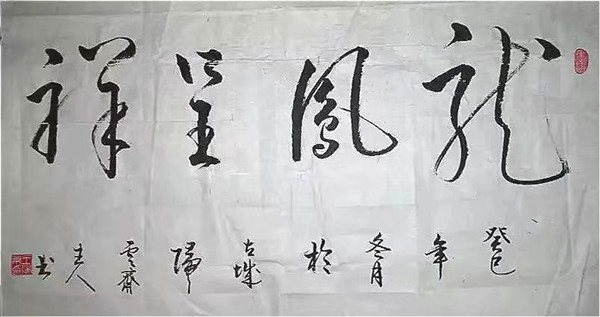 龍鳳呈祥
癸巳年冬月於古城歸雲齋主人書